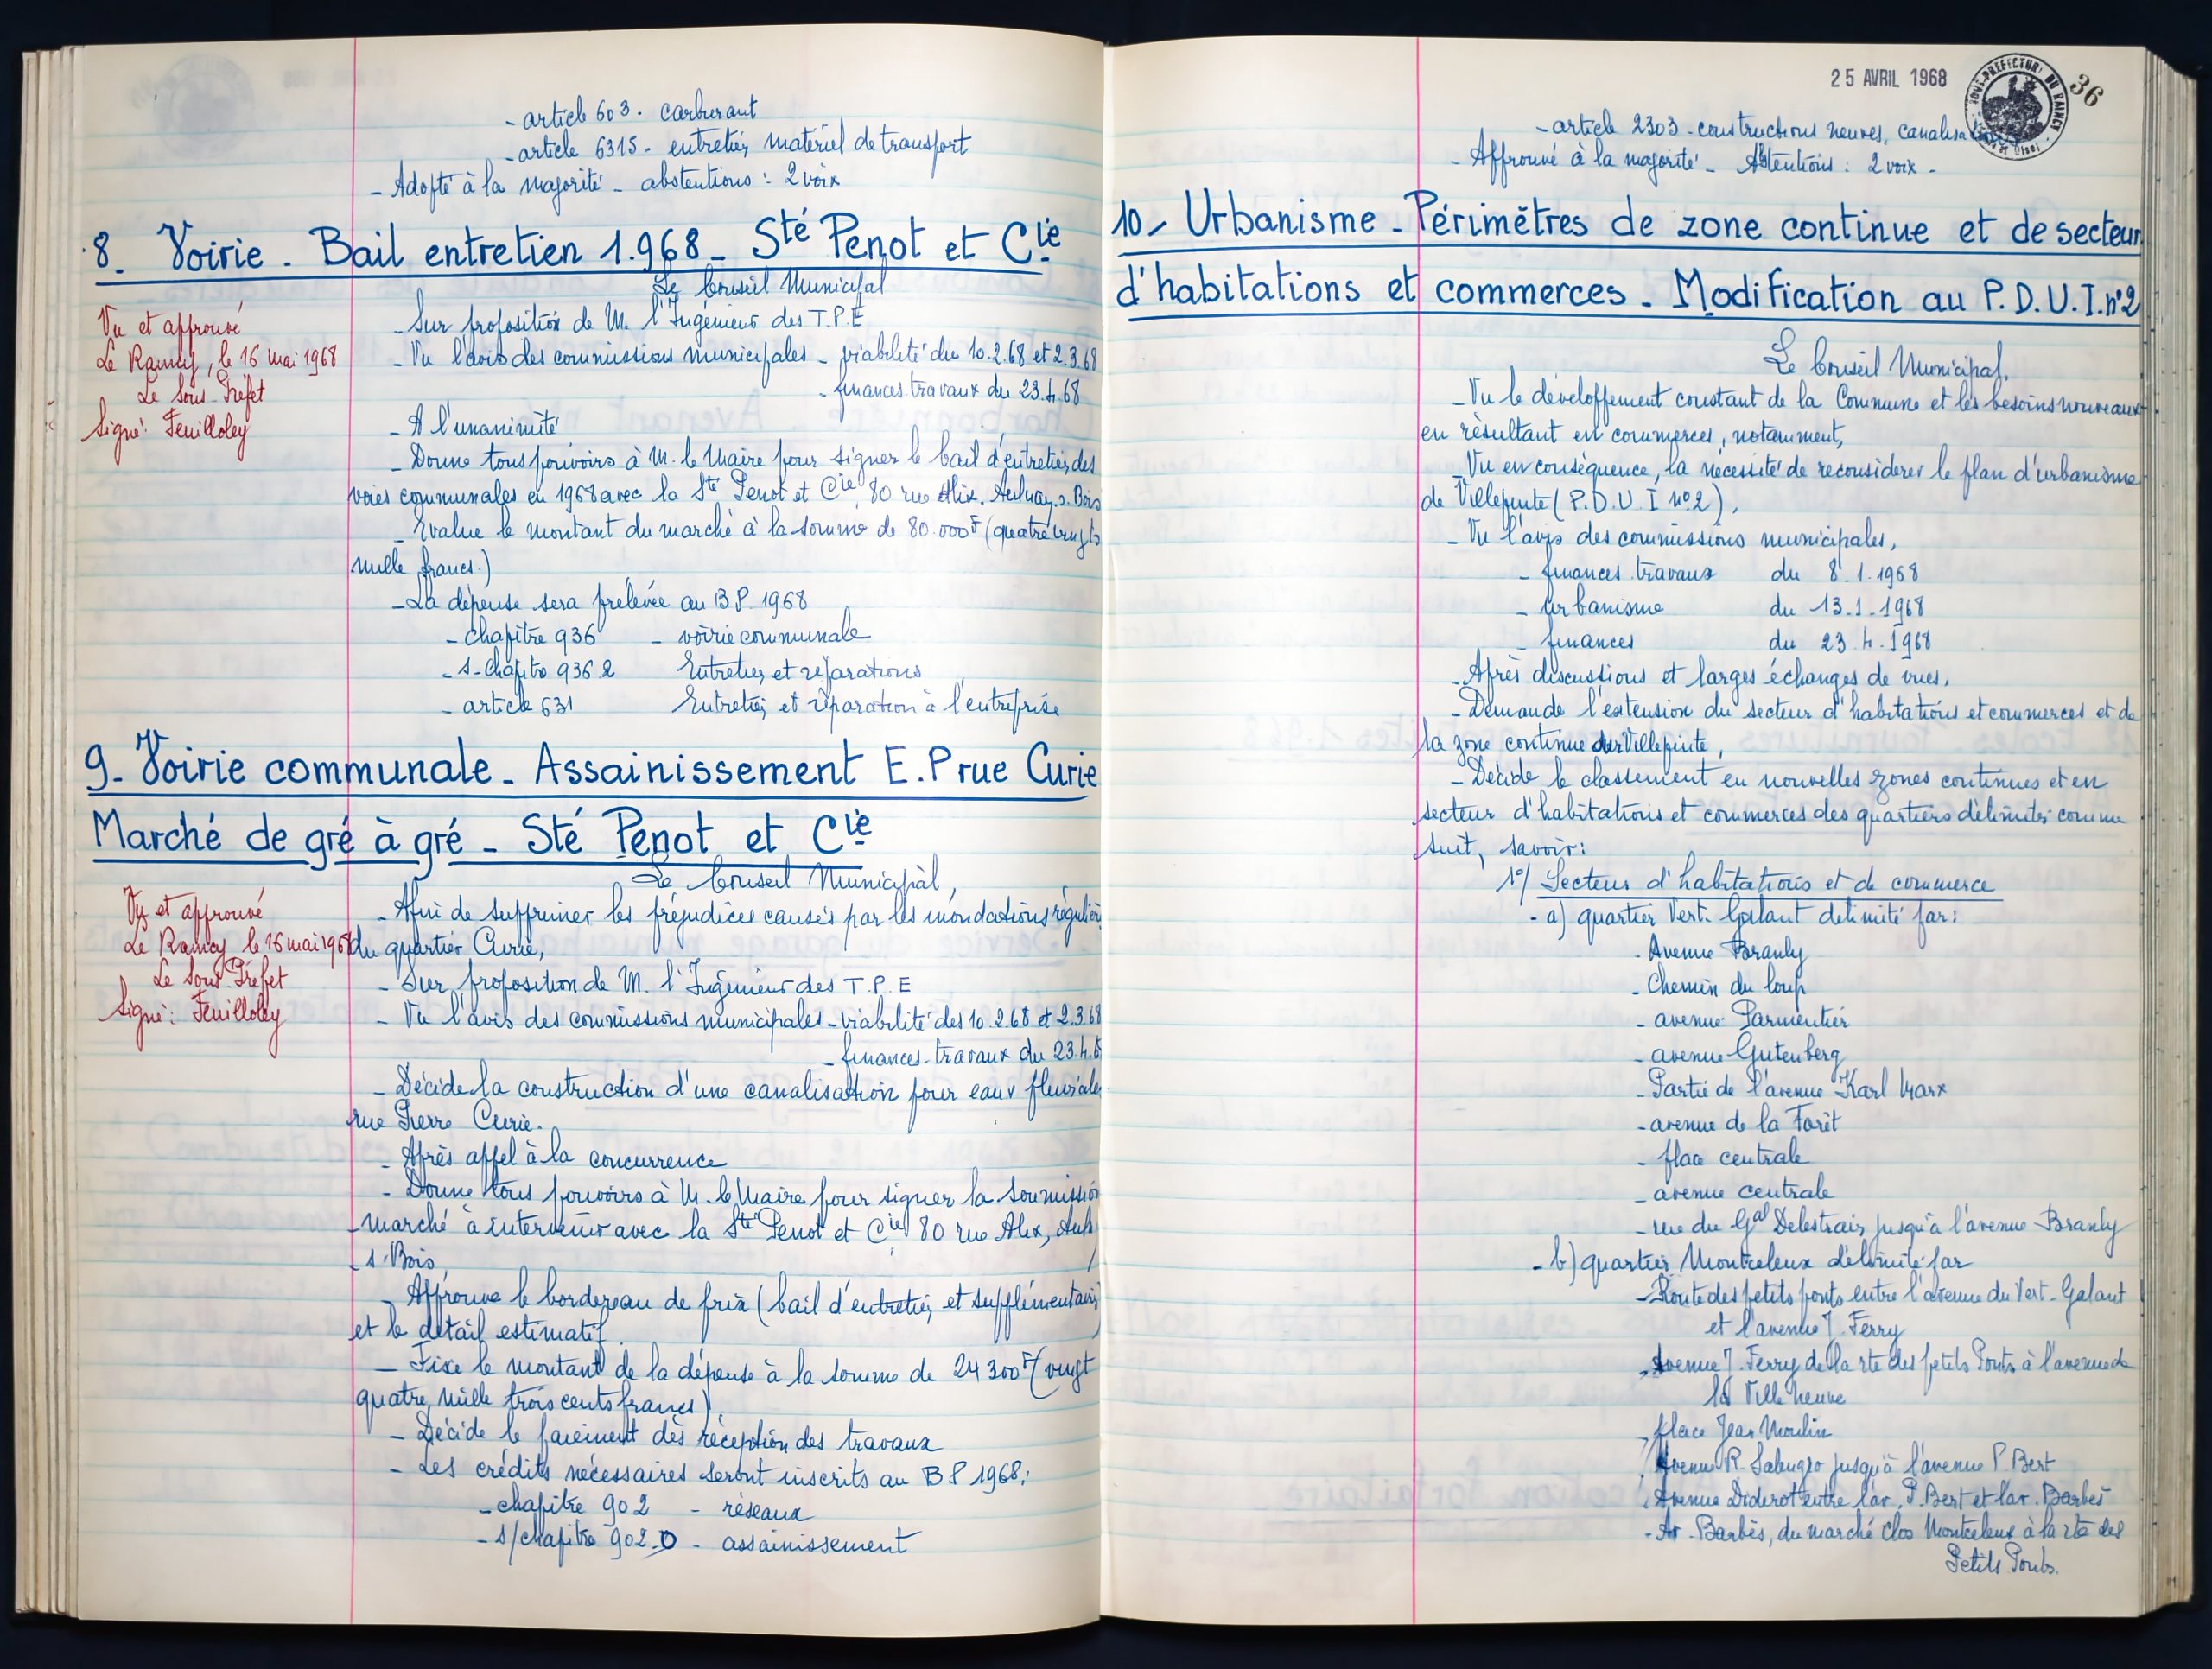 - article 603 - carburant
- article 6315 - entretien matériel de transport
- Adopté à la majorité - abstentions : 2 voix
8. Voirie - Bail entretien 1.968 - Sté Penot et Cie
Le Conseil Municipal
Vu et approuvé
Le Raincy, le 16 mai 1968
Le Sous-Préfet
Signé : Feuilloley
- Sur proposition de M. l'Ingénieur des T.P.E
- Vu l'avis des commissions municipales - viabilité du 10.2.68 et 2.3.68
- finances travaux du 23.4.68
- A l'unanimité
- Donne tous pouvoirs à M. le Maire pour signer le bail d'entretien des
voies communales en 1968 avec la Sté Penot et Cie 80 rue Alix. Aulnay.s.Bois
- Evalue le montant du marché à la somme de 80.000F (quatre vingts
mille francs.)
- La dépense sera prélevée au B.P. 1968
- chapitre 936 - voirie communale
- s-chapitre 936.2 Entretien et réparations
- article 631 Entretien et réparation à l'entreprise
9. Voirie communale - Assainissement E.P rue Curie
Marché de gré à gré - Sté Penot et Cie
Le Conseil Municipal,
Vu et approuvé
Le Raincy le 16 mai 1968
Le Sous-Préfet
Signé : Feuilloley
- Afin de supprimer les préjudices causés par les inondations
du quartier Curie,
- Sur proposition de M. l'Ingénieur des T.P.E
- Vu l'avis des commissions municipales - viabilité des 10.2.68 et 2.3.68
- finances-travaux du 23.4.6
- Décide la construction d'une canalisation pour eaux pluviales
rue Pierre Curie.
- Après appel à la concurrence
- Donne tous pouvoirs à M. le Maire pour signer la soumission
- marché à intervenir avec la Sté Penot et Cie 80 rue Alix,
s. Bois,
- Approuve le bordereau de prix (bail d'entretien et supplémentaire)
et le détail estimatif.
- Fixe le montant de la dépense à la somme de 24 300F (vingt
quatre mille trois cents francs)
- Décide le paiement dès réception des travaux
- Les crédits nécessaires seront inscrits au B.P 1968 :
- chapitre 902 - réseaux
- s/chapitre 902.0 - assainissement
25 AVRIL 1968
SOUS-PREFECTURE DU RAINCY
36
- article 2303 - constructions neuves, canalisations
- Approuvé à la majorité - Abstentions : 2 voix -
10 - Urbanisme - Périmètres de zone continue et de secteur
d'habitations et commerces - Modification au P.D.U.I. n°2
Le Conseil Municipal,
- Vu le développement constant de la Commune et les besoins nouveaux
en résultant en commerces, notamment,
Vu en conséquence, la nécessité de reconsidérer le plan d'urbanisme
de Villepinte (P.D.U.I n°2),
- Vu l'avis des commissions municipales,
- finances travaux du 8.1.1968
- urbanisme du 13.1.1968
- finances du 23.4.1968
- Après discussions et larges échanges de vues,
- Demande l'extension du secteur d'habitations et commerces et de
la zone continue de Villepinte,
- Décide le classement en nouvelles zones continues et en
secteur d'habitations et commerces des quartiers délimités comme
suit, savoir :
1°/ Secteur d'habitations et de commerce
- a) quartier Vert-Galant délimité par :
- Avenue Branly
- Chemin du loup
- avenue Parmentier
- avenue Gutenberg
- Partie de l'avenue Karl Marx
- avenue de la Forêt
- place centrale
- avenue centrale
- rue du Gal Delestrain jusqu'à l'avenue Branly
- b) quartier Montceleux délimité par
- Route des petits ponts entre l'avenue du Vert-Galant
et l'avenue J. Ferry
- Avenue J. Ferry de la rte des petits Ponts à l'avenue de
la Ville neuve
- place Jean Moulin
- Avenue R. Salengro jusqu'à l'avenue P. Bert
- Avenue Diderot entre l'av. P. Bert et l'av. Barbès
- Av. Barbès, du marché clos Montceleux à la rte des
Petits Ponts.